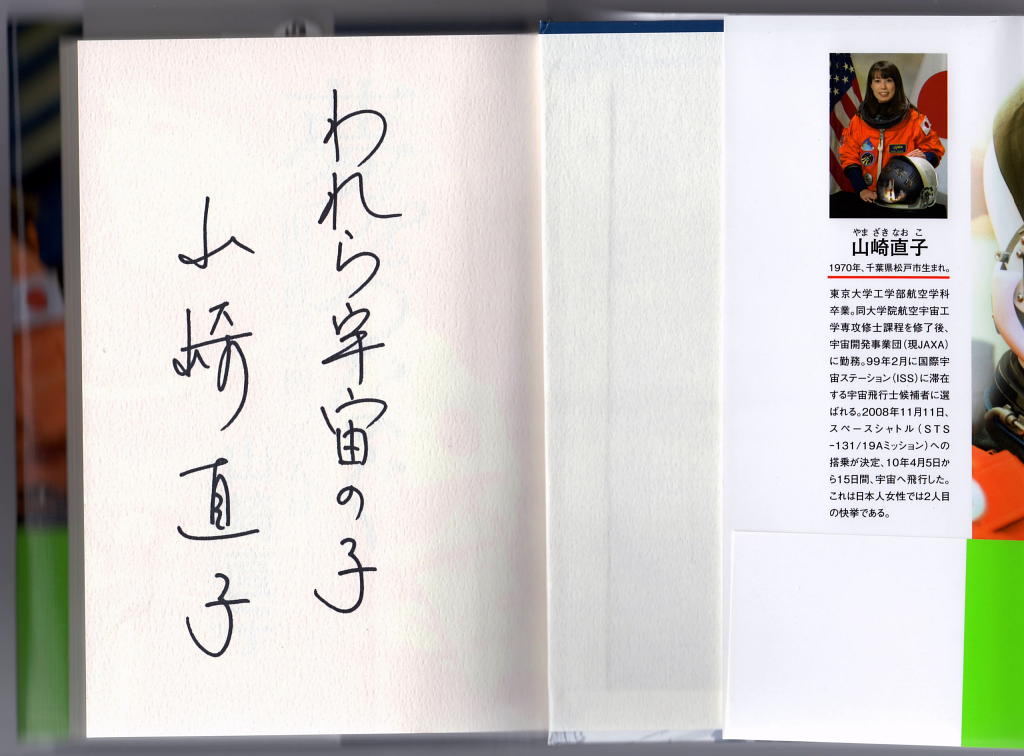 われら宇宙の子
山崎直子
やまざきなおこ
山崎直子
1970年、千葉県松戸市生まれ。
東京大学工学部航空学科
卒業。同大学院航空宇宙工
学専攻修士課程を修了後、
宇宙開発事業団（現JAXA）
に勤務。99年2月に国際宇
宙ステーション（ISS）に滞在
する宇宙飛行士候補者に選
ばれる。2008年11月11日、
スペースシャトル（STS
-131/19Aミッション）への
搭乗が決定、10年4月5日か
ら15日間、宇宙へ飛行した。
これは日本人女性では2人目
の快挙である。